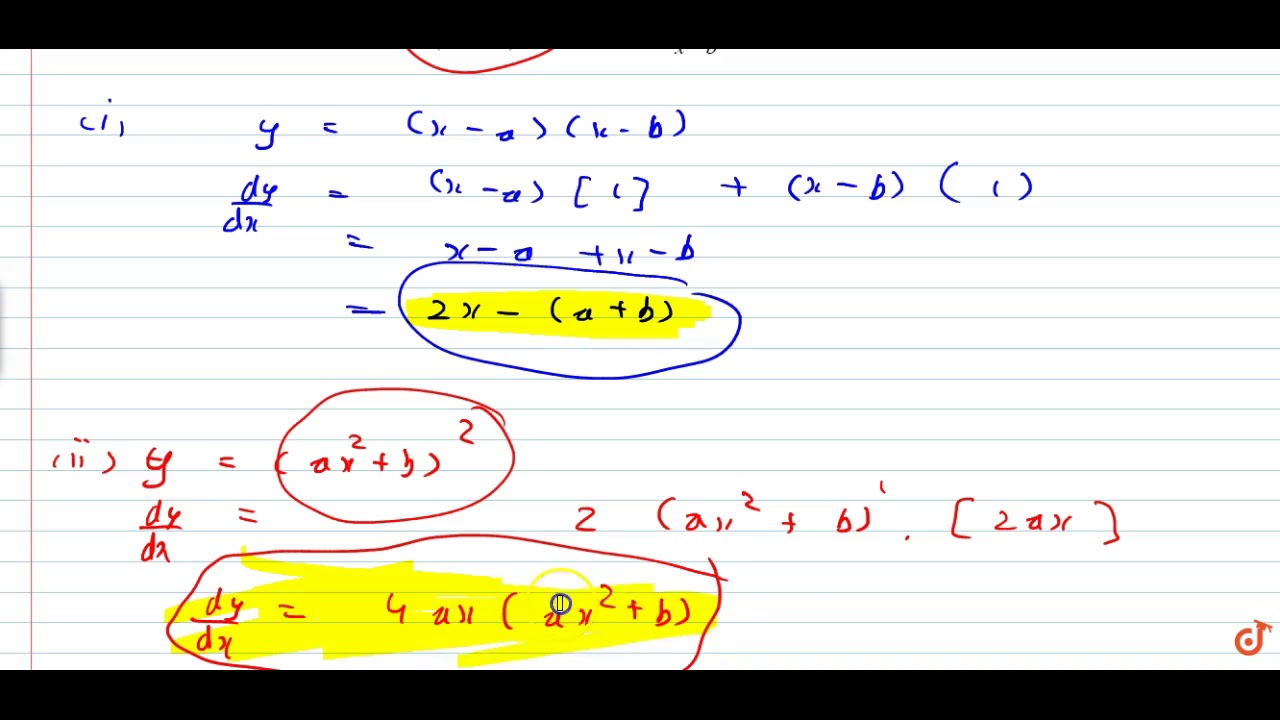 (i) y = (x - a)(x - b)
dy/dx = (x - a) [1] + (x - b) (1)
= x - a + x - b
= 2x - (a + b)
(ii) y = (ax² + b)²
dy/dx = 2 (ax² + b)¹ . [2ax]
dy/dx = 4ax (ax² + b)